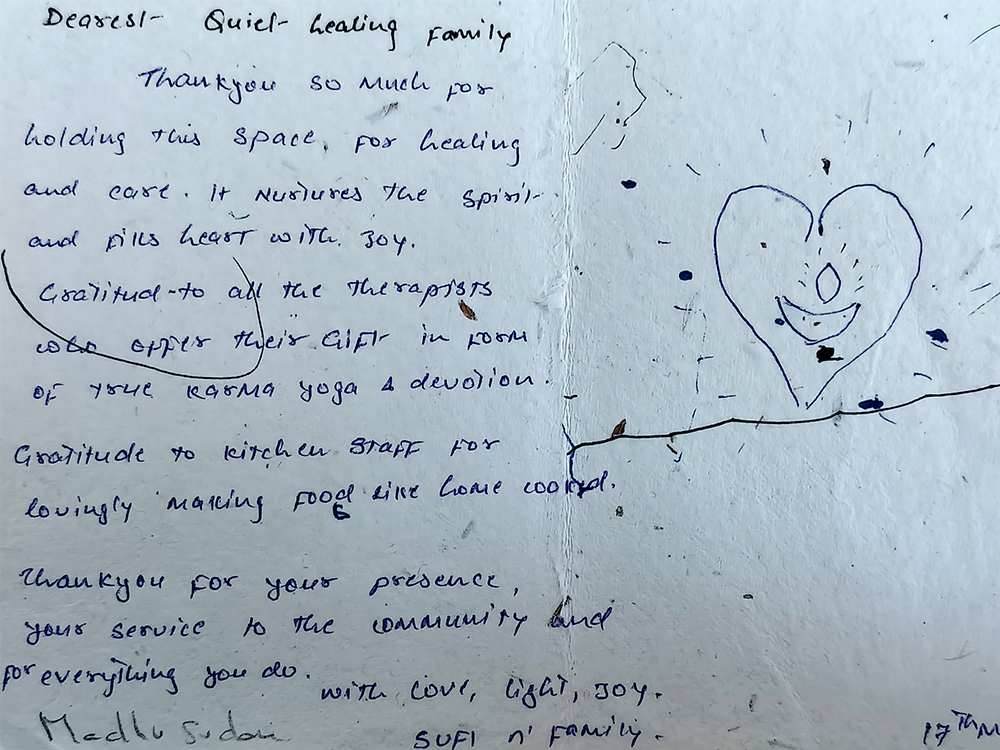 Dearest Quiet healing Family
Thankyou so much for
holding this space, for healing
and care. it nurtures the spirit
and fills heart with joy.
Gratitud to all the therapists
who offer their Gift in form
of true karma yoga & devotion.
Gratitude to kitchen staff for
lovingly making food like home cooked.
Thankyou for your presence,
your service to the community and
for everything you do.
with love, light, joy.
Madhu Sudan
SUFI n' Family.
17th M